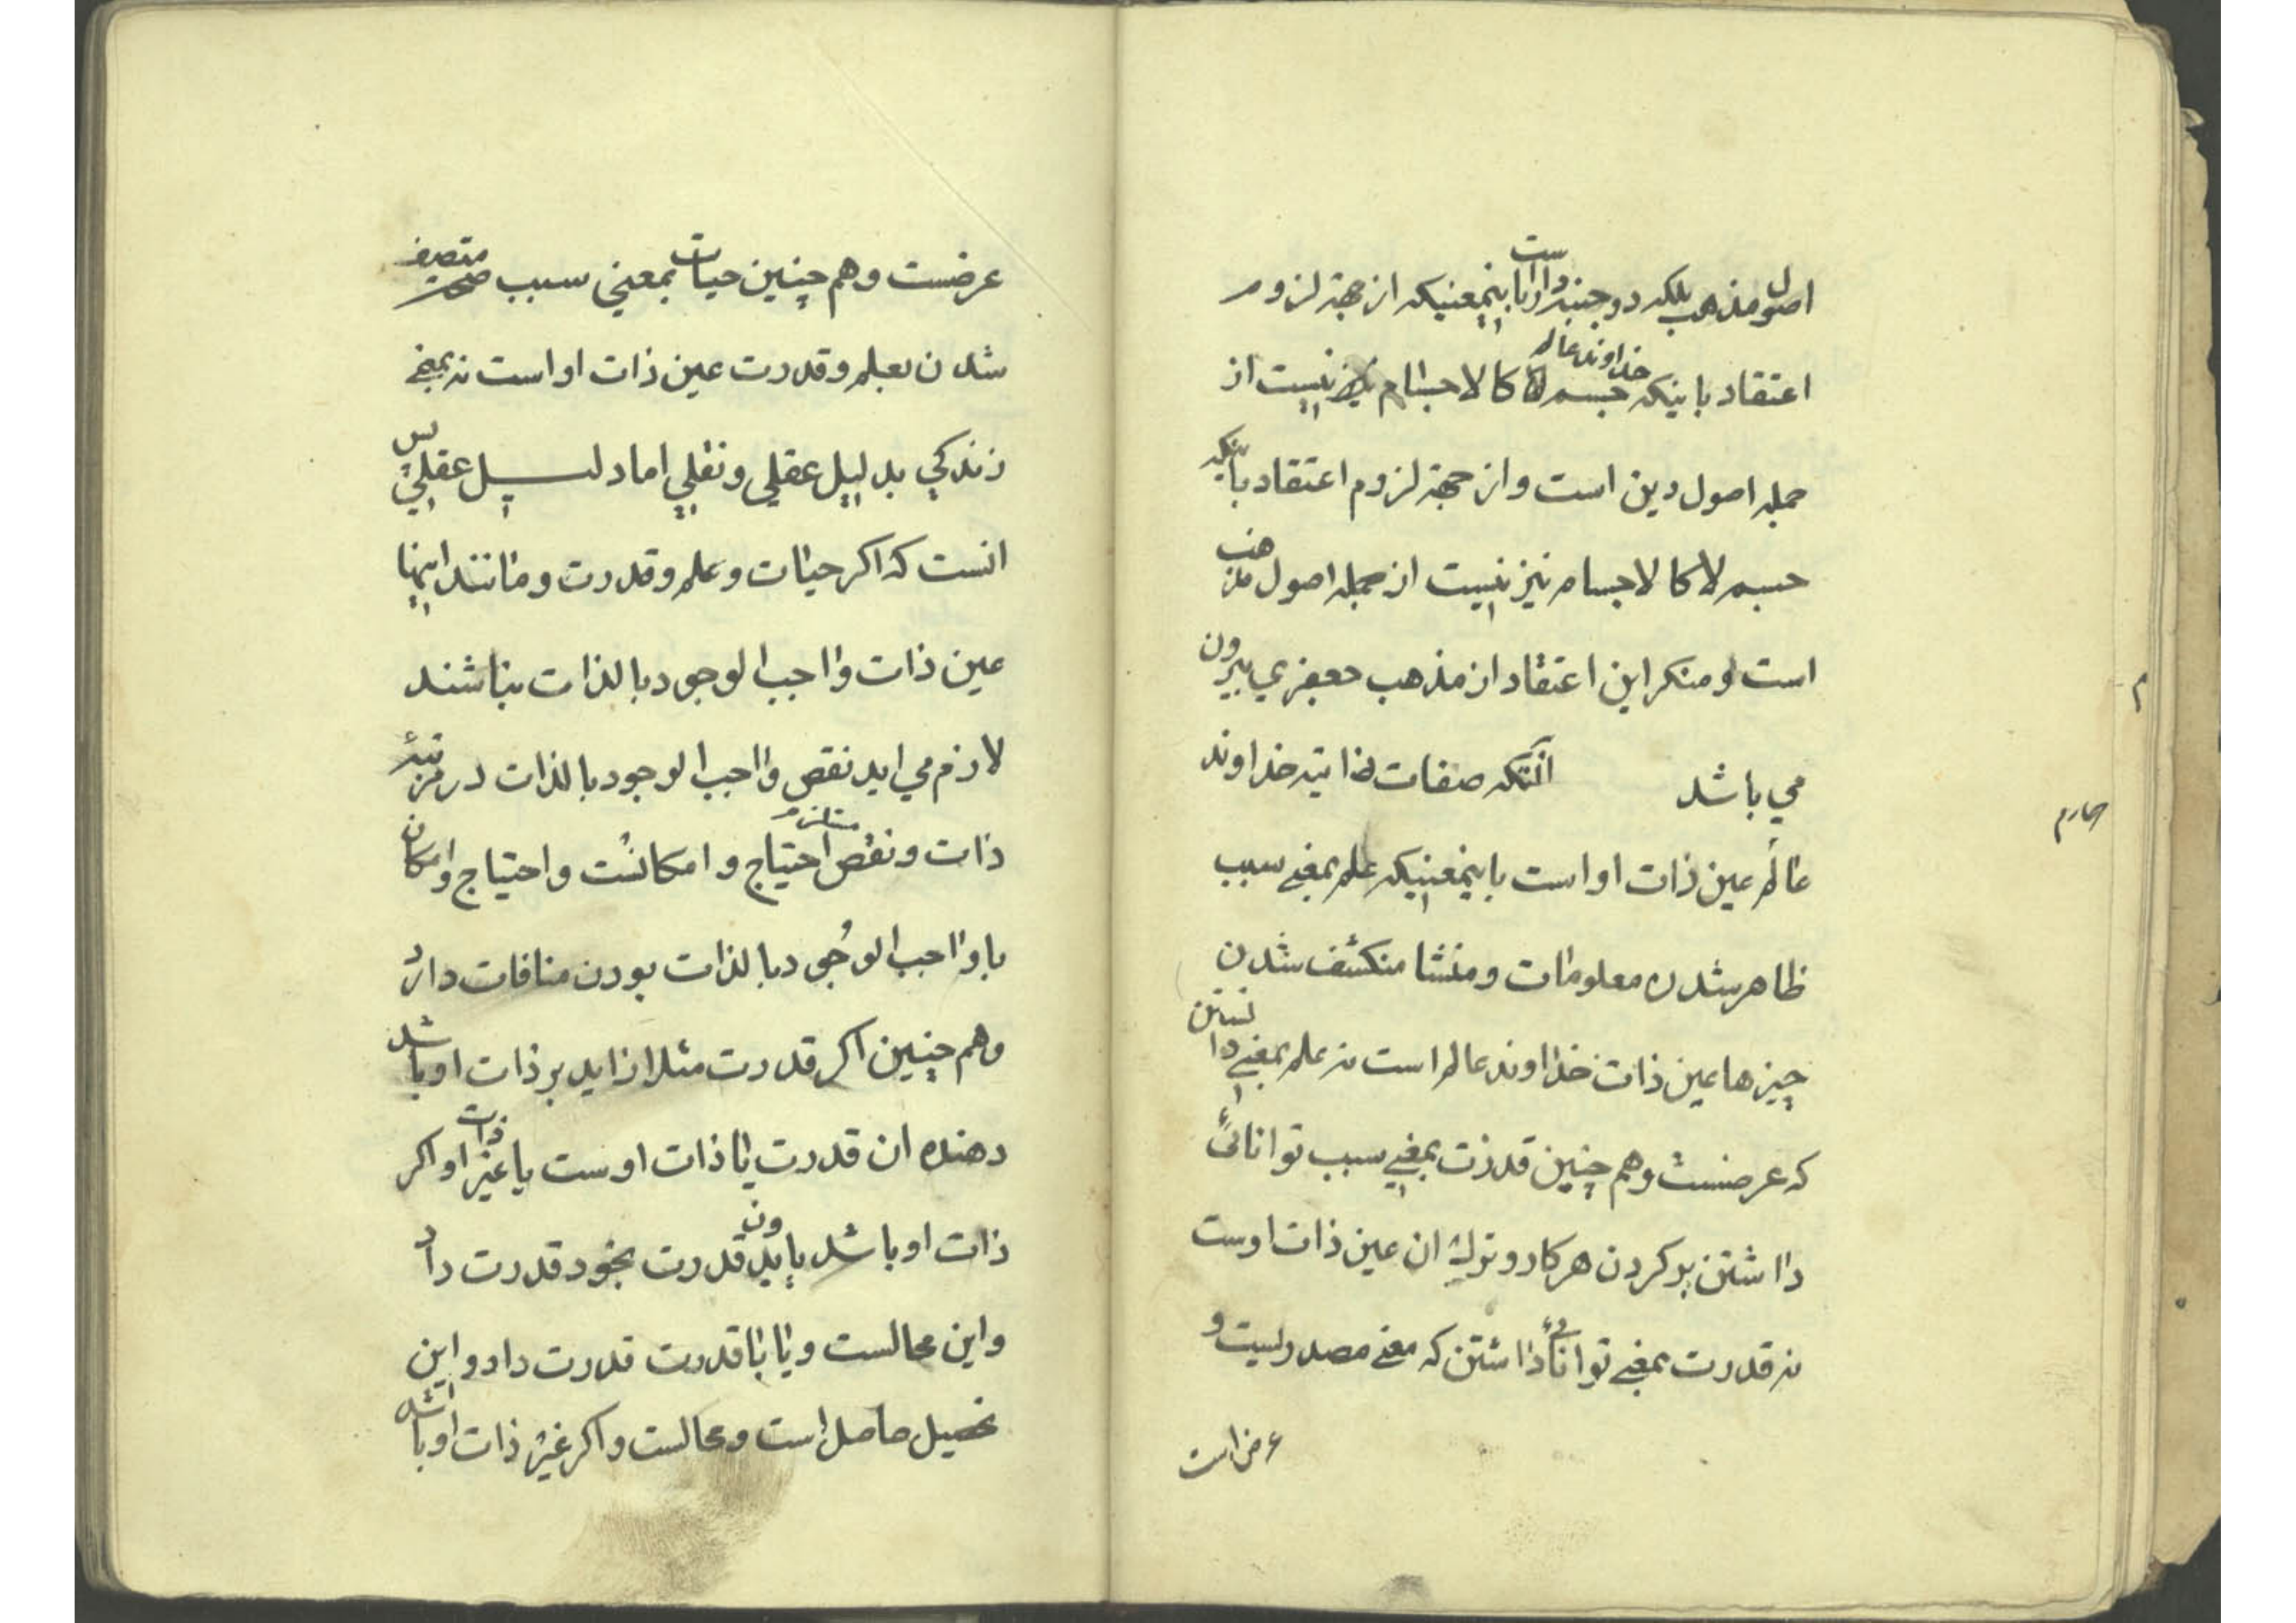 اصول مذهب بلکه دو جنبه داراست باینمعنیکه از جهة لزوم
اعتقاد باینکه خداوند عالم جسم لا کالاجسام نیز نیست از
جمله اصول دین است و از جهة لزوم اعتقاد باینکه
جسم لا کالاجسام نیز نیست از جمله اصول مذهب
است و منکر این اعتقاد از مذهب جعفری بیرون
می باشد انکه صفات ذاتیه خداوند
چهارم
م
عالم عین ذات او است باینمعنیکه علم بمعنی سبب
ظاهر شدن معلومات و منشا منکشف شدن
چیزها عین ذات خداوند عالم است نه علم بمعنی دانستن
که عرضست و هم چنین قدرت بمعنی سبب توانائی
داشتن بر کردن هر کار و ترك ان عین ذات اوست
نه قدرت بمعنی توانائی داشتن که معنی مصدریست و
عرض است
عرضست و هم چنین حیات بمعنی سبب متصف
شدن بعلم و قدرت عین ذات او است نه بمعنی
زندکی بدلیل عقلی و نقلی اما دلیل عقلی پس
انست که اکر حیات و علم و قدرت و مانند اینها
عین ذات واجب الوجود بالذات نباشند
لازم می اید نقص واجب الوجود بالذات در مرتبۀ
ذات و نقص مستلزم احتیاج و امکانست و احتیاج و امکان
با واجب الوجود بالذات بودن منافات دارد
و هم چنین اکر قدرت مثلا زاید بر ذات او باشد
دهنده ان قدرت یا ذات اوست یا غیر ذات او اکر
ذات او باشد یا بدون قدرت بخود قدرت داد
و این محالست و یا با قدرت قدرت داد و این
تحصیل حاصل است و محالست و اکر غیر ذات او باشد